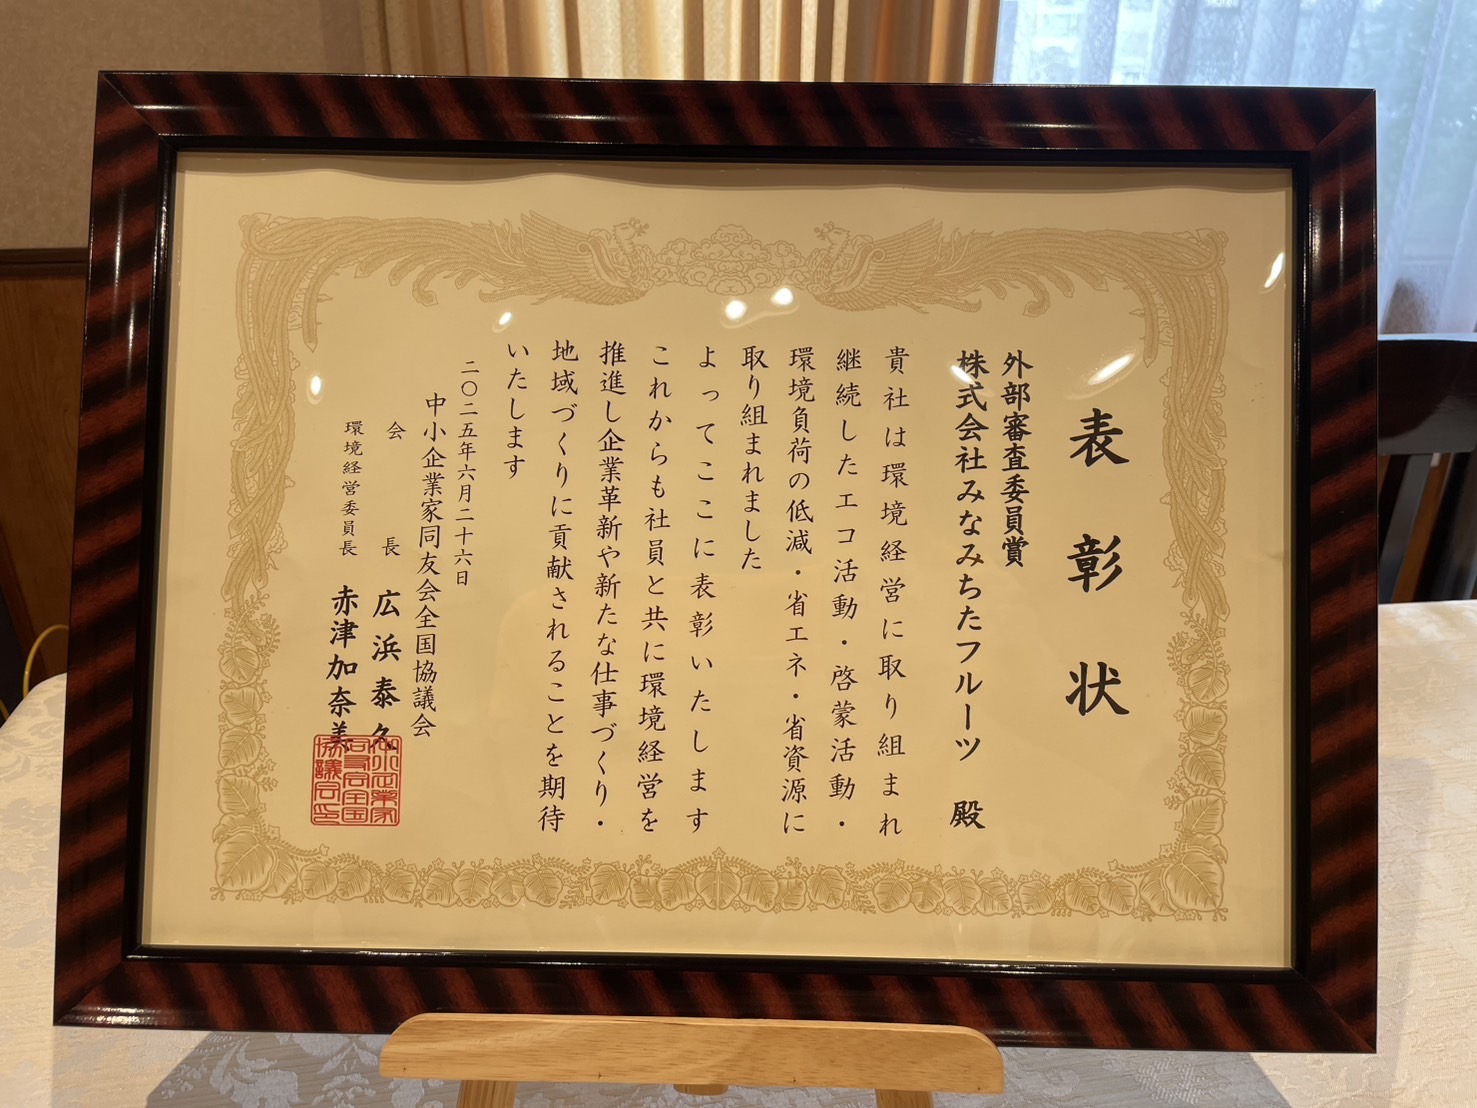 表彰状
外部審査委員賞
株式会社みなみちたフルーツ 殿
貴社は環境経営に取り組まれ
継続したエコ活動・啓蒙活動・
環境負荷の低減・省エネ・省資源に
取り組まれました
よってここに表彰いたします
これからも社員と共に環境経営を
推進し企業革新や新たな仕事づくり・
地域づくりに貢献されることを期待
いたします
二〇二五年六月二十六日
中小企業家同友会全国協議会
会長 広浜泰久
環境経営委員長 赤津加奈美
中小企業家
同友会全国
協議会印